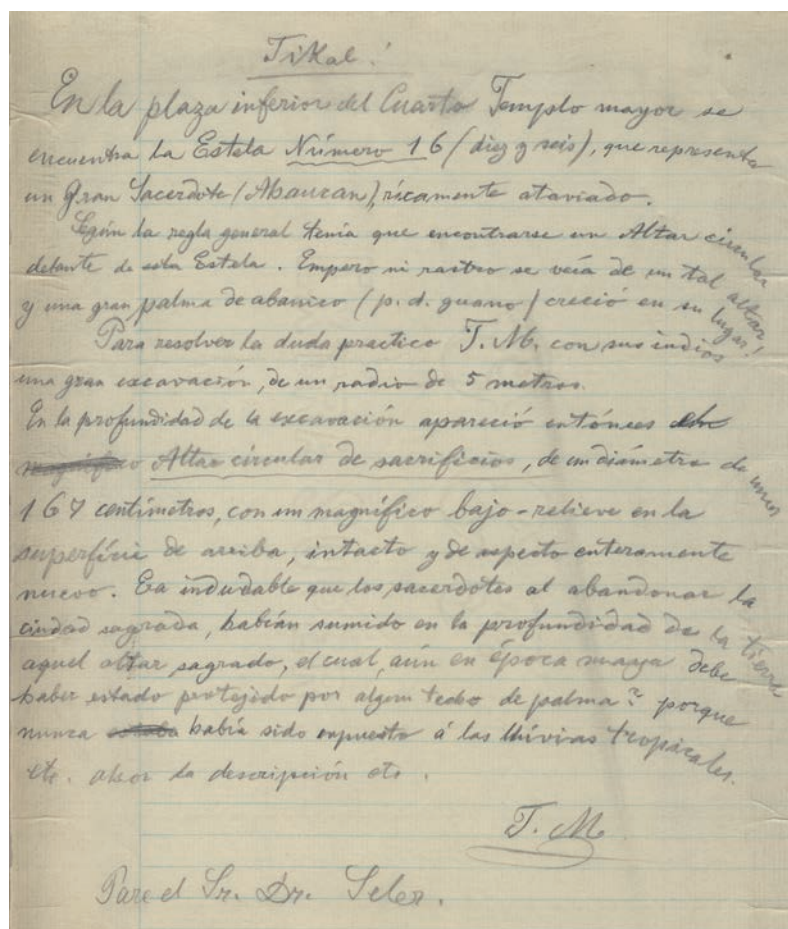 Tikal!
En la plaza inferior del Cuarto Templo mayor se
encuentra la Estela Número 16 (diez y seis), que representa
un Gran Sacerdote (Ahaucan), ricamente ataviado.
Según la regla general tenía que encontrarse un Altar circular
delante de esta Estela. Empero ni rastro se veía de un tal altar
y una gran palma de abanico (p. d. guano) creció en su lugar!
Para resolver la duda practico T. M. con sus indios
una gran excavación, de un radio de 5 metros.
En la profundidad de la excavación apareció entónces
Altar circular de sacrificios, de un diámetro de unos
167 centímetros, con un magnífico bajo-relieve en la
superficie de arriba, intacto y de aspecto enteramente
nuevo. Es indudable que los sacerdotes al abandonar la
ciudad sagrada, habían sumido en la profundidad de la tierra
aquel altar sagrado, el cual, aún en época maya debe
haber estado protejido por algun techo de palma? porque
nunca había sido expuesto á las lluvias tropicales.
etc. la descripción etc.
T. M.
Para el Sr. Dr. Seler.